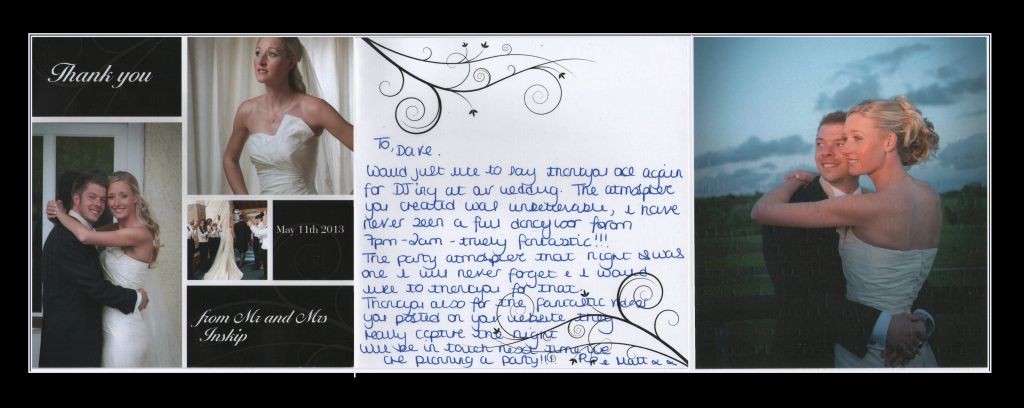 Thank you
May 11th 2013
from Mr and Mrs
Inskip
To, Dave.
Would just like to say thankyou once again
for DJ'ing at our wedding. The atmosphere
you created was unbelievable, i have
never seen a full dancefloor from
7pm-2am - truely fantastic!!!
The party atmosphere that night was
one i will never forget & i would
like to thankyou for that.
Thankyou also for the fantastic video
you posted on your website, they
really capture the night
will be in touch next time we
are planning a party!!! & Matt x x